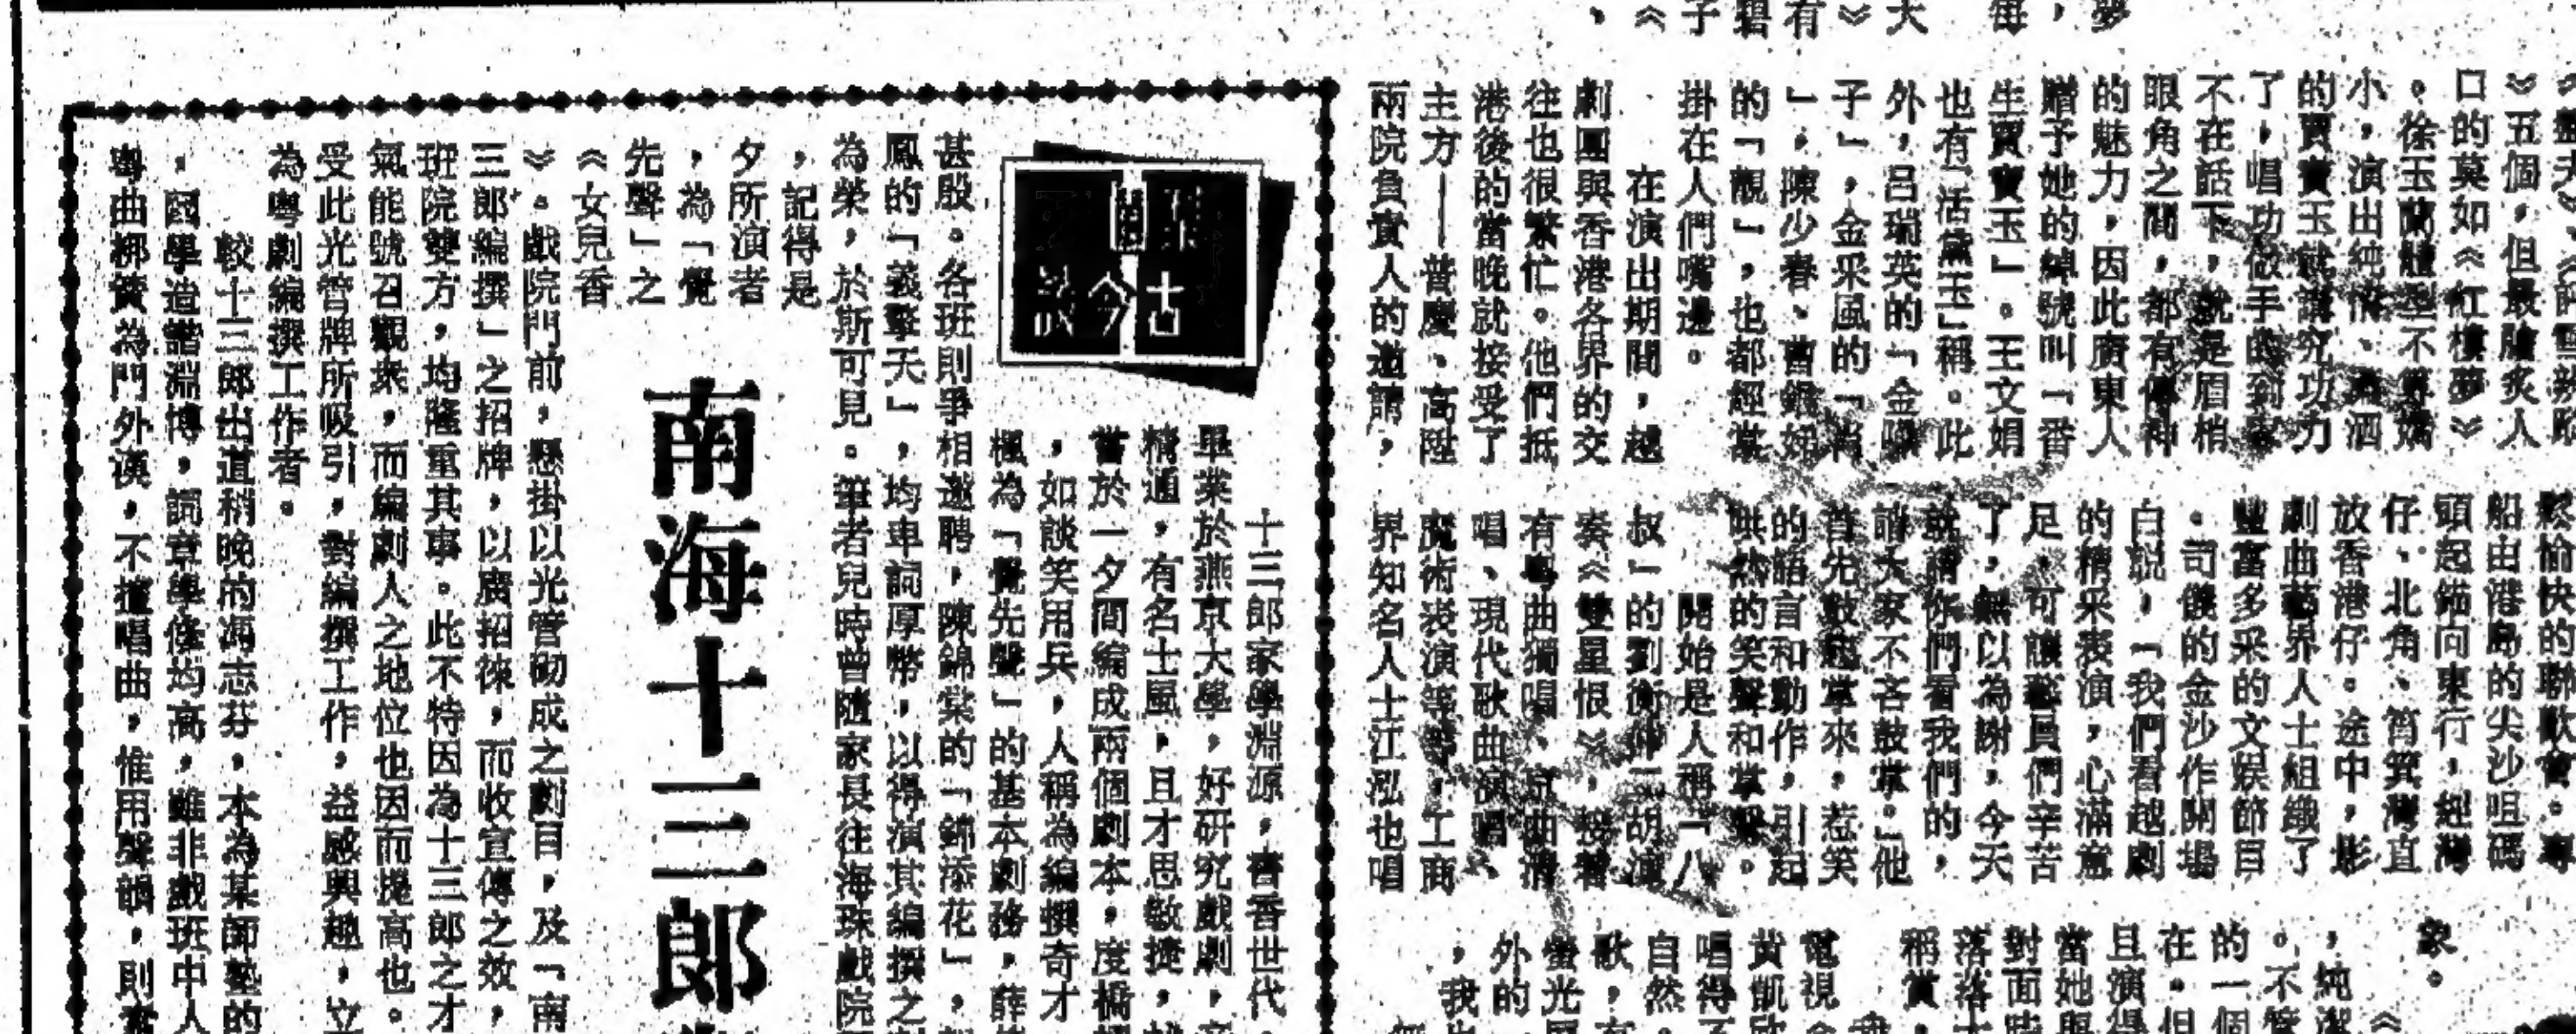 夢
，
每
大
》
有
碧
子
《
，
》五個，但最膾炙人
口的莫如《紅樓夢》
。徐玉蘭體型不算嬌
小，演出純情、瀟洒
的賈寶玉就講究功力
了，唱功做手的到家
不在話下，就是眉梢
眼角之間，都有傳神
的魅力，因此廣東人
贈予她的綽號叫「番
生賈寶玉」。王文娟
也有「活黛玉」稱。此
外，呂瑞英的「金嗓
子」，金采風的「肖
」，陳少春、曹銀娣
的「靚」，也都經常
掛在人們嘴邊。
在演出期間，越
劇團與香港各界的交
往也很繁忙。他們抵
港後的當晚就接受了
主方——普慶、高陞
兩院負責人的邀請，
鬆愉快的聯歡會。專
船由港島的尖沙咀碼
頭起錨向東行，經灣
仔、北角、筲箕灣直
放香港仔。途中，影
劇曲藝界人士組織了
豐富多采的文娛節目
。司儀的金沙作開場
白說，「我們看越劇
的精采表演，心滿意
足，可讓藝員們辛苦
了，無以為謝，今天
就請你們看我們的，
請大家不吝鼓掌。」他
首先鼓起掌來，惹笑
的語言和動作，引起
哄然的笑聲和掌聲。
開始是人稱「八
叔」的劉衡仲二胡演
奏《雙星恨》，接着
有粵曲獨唱、京曲清
唱、現代歌曲演唱、
魔術表演等等，工商
界知名人士江泓也唱
象。
《
，純潔
。不管
的一個
在。但
且演得
當她與
對面時
落落大
稱賞，
電視
黃凱欣
唱得不
自然。
歌，有
螢光屏
外的
，我也
古今談
南海十三郎
十三郎家學淵源，書香世代，
畢業於燕京大學，好研究戲劇，音
精通，有名士風，且才思敏捷，
嘗於一夕間編成兩個劇本，度橋
，如談笑用兵，人稱為編撰奇才
櫃為「覺先聲」的基本劇務，薛
甚殷。各班則爭相邀聘，陳錦棠的「錦添花」，
鳳的「義擎天」，均卑詞厚幣，以得演其編撰之
為榮，於斯可見。筆者兒時曾隨家長往海珠戲院
，記得是
夕所演者
，為「覺
先聲」之
《女兒香
》。戲院門前，懸掛以光管砌成之劇目，及「南
三郎編撰」之招牌，以廣招徠，而收宣傳之效，
班院雙方，均隆重其事。此不特因為十三郎之才
氣能號召觀衆，而編劇人之地位也因而提高也。
受此光管牌所吸引，對編撰工作，益感興趣，立
為粵劇編撰工作者。
較十三郎出道稍晚的馮志芬，本為某師塾的
，國學造詣淵博，詞章學修均高，雖非戲班中人
粵曲梆簧為門外漢，不擅唱曲，惟用聲韻，則